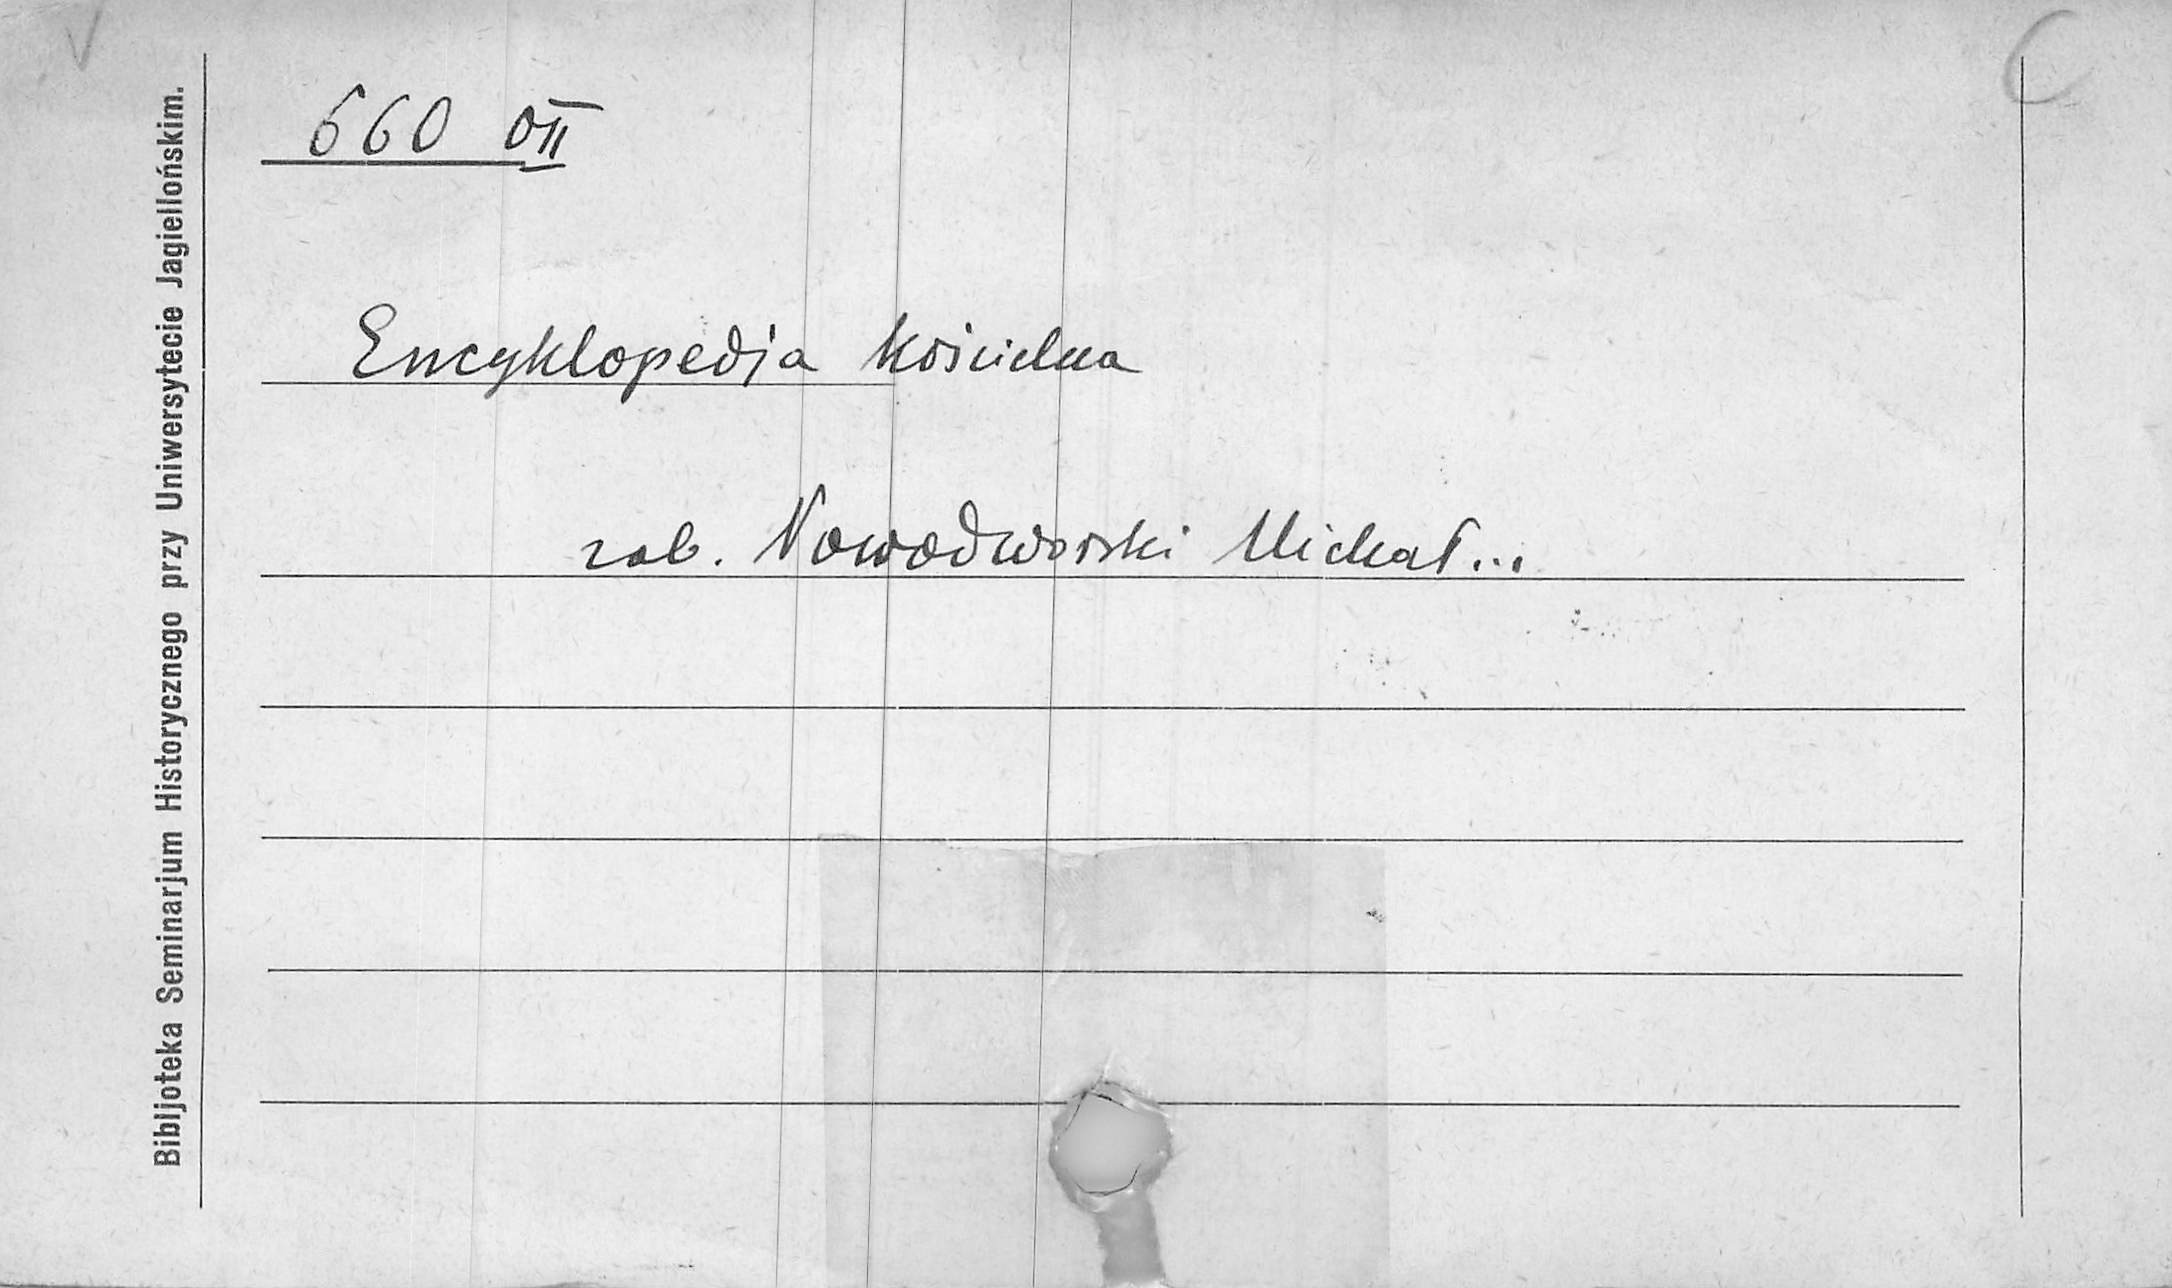 660 OII
Encyklopedja kościelna
zob. Nowodworski Michał...
Bibljoteka Seminarjum Historycznego przy Uniwersytecie Jagiellońskim.